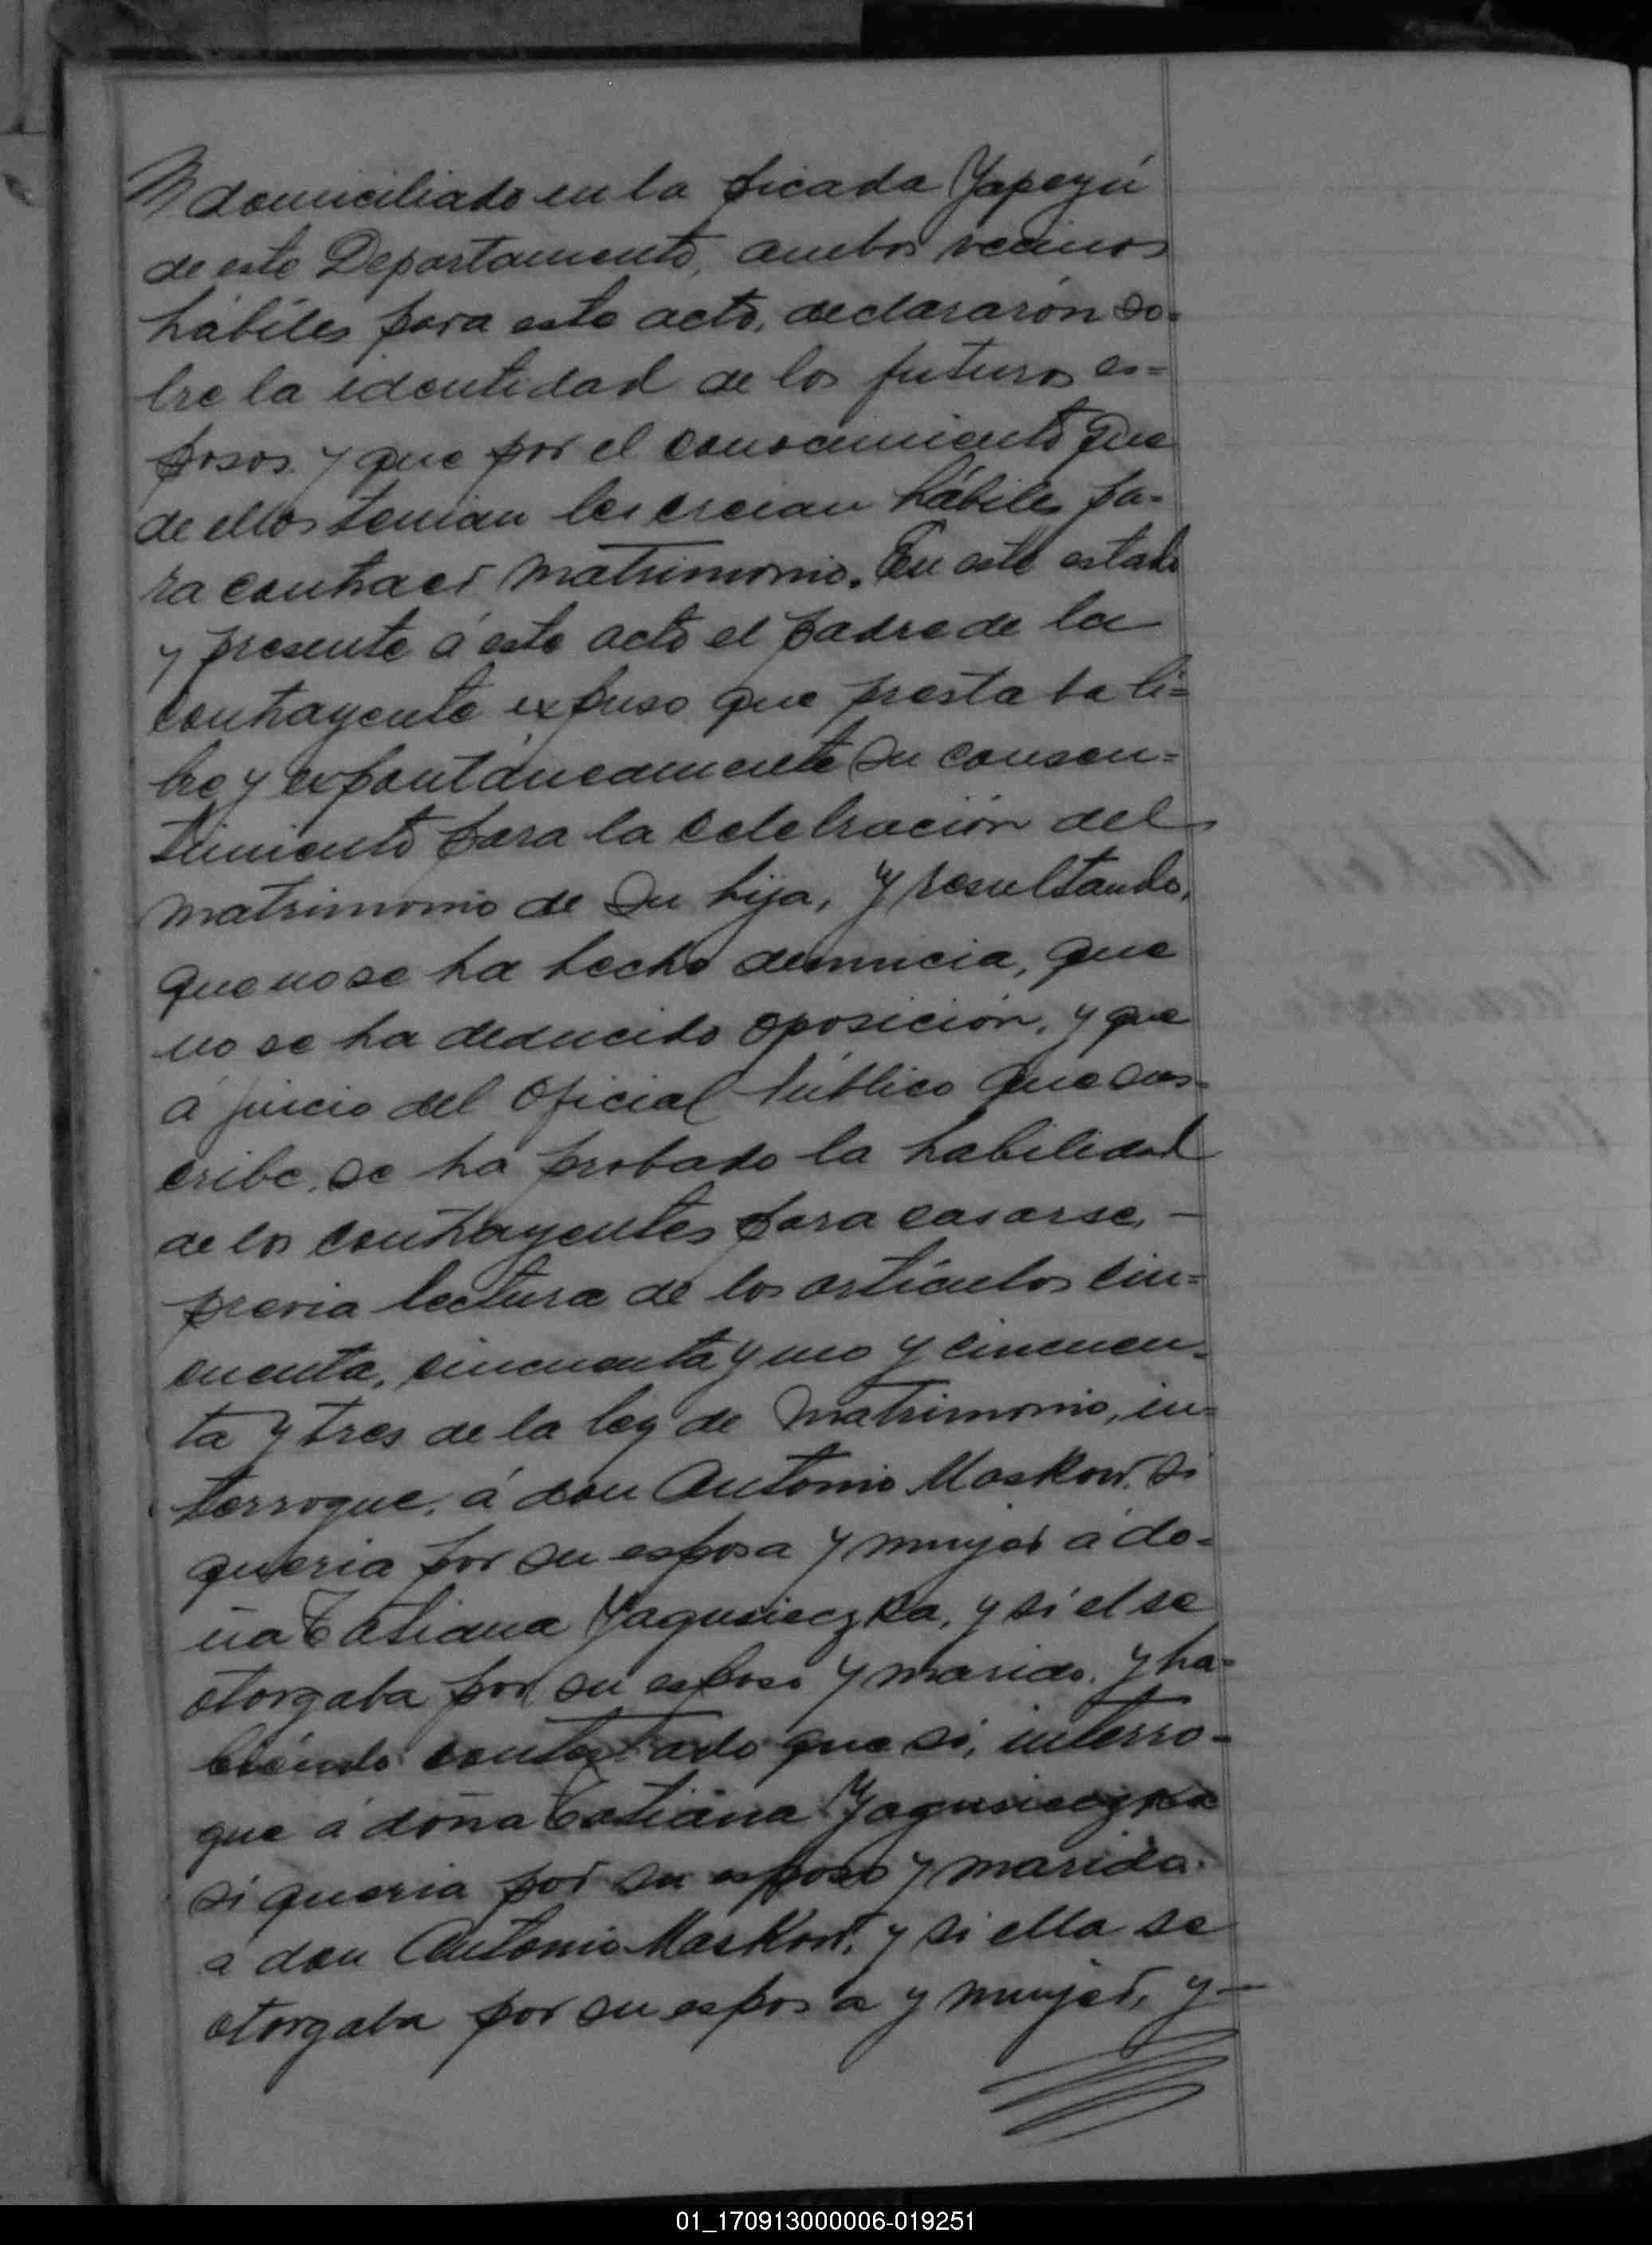 domiciliado en la picada Yapeyú
de este Departamento, ambos vecinos
hábiles para este acto, declararón so-
bre la identidad de los futuros es=
posos y que por el conocimiento que
de ellos tenian les creian hábiles pa-
ra contraer matrimonio. En este estado
y presente á este acto el padre de la
contrayente expuso que prestaba li=
bre y expontáneamente su consen=
timiento para la celebración del
matrimonio de su hija, y resultando,
que no se ha hecho denuncia, que
no se ha deducido oposición, y que
á juicio del Oficial Público que sus-
cribe, se ha probado la habilidad
de los contrayentes para casarse, —
previa lectura de los artículos cin=
cuenta, cincuenta y uno y cincuen-
ta y tres de la ley de matrimonio, in=
terrogue, á don Antonio Moskow, si
queria por su esposa y mujer a do-
ña Tatiana Yagusieczka, y si el se
otorgaba por su esposo y marido, y ha=
biéndo contestado que si, interro-
gue a doña Tatiana Yagusieczka
si queria por su esposo y marido
a don Antonio Moskow, y si ella se
otorgaba por su esposa y mujer, y —
01_170913000006-019251